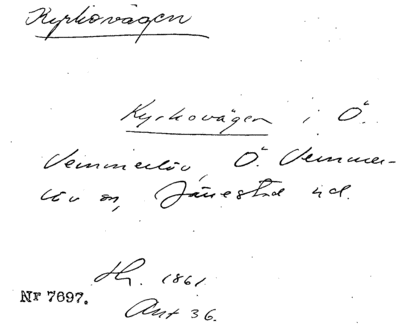 Kyrkovägen
Kyrkovägen i Ö.
Vemmerlöv, Ö. Vemmer-
löv sn, Järrestad hd.
Hr. 1861
Nr 7697.
Ant 36.